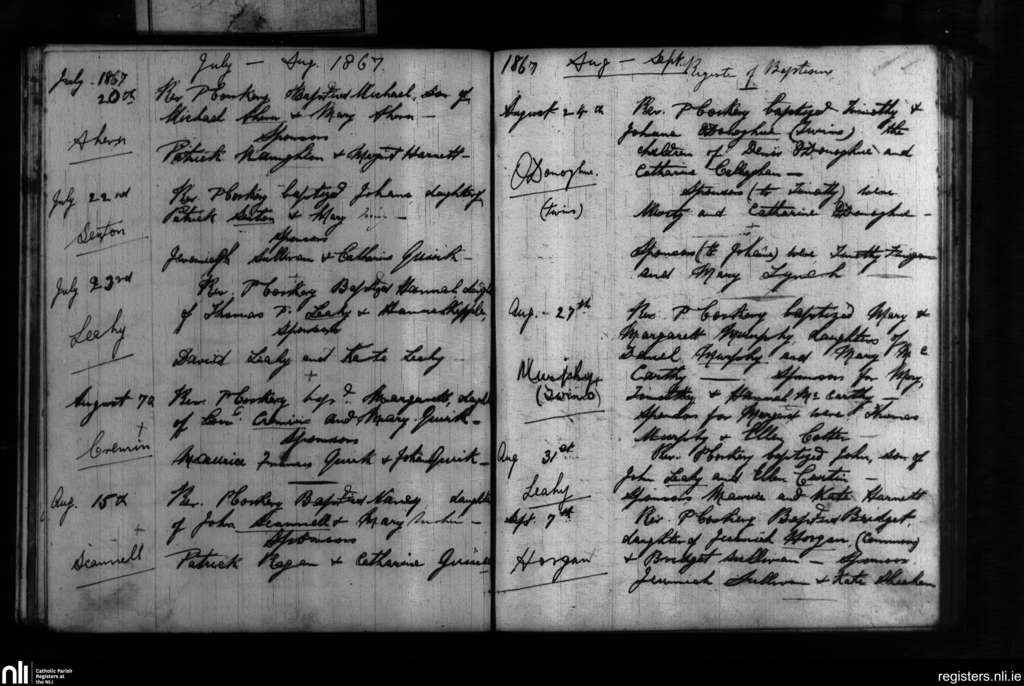 July - Aug. 1867.
July. 1867
20th
Ahern
Rev P Corkery Baptized Michael, son of
Michael Ahern & Mary Ahern -
Sponsors
Patrick Naughton & Margt Harnett -
July 22nd
Sexton
Rev P Corkery baptized Johana daughter of
Patrick Sexton & Mary
Sponsors
Jeremiah Sullivan & Catherine Quirk -
July 23rd
Leahy
Rev. P Corkery Baptized Hannah daugh
of Thomas Leahy & Hanna
Sponsors
David Leahy and Kate Leahy
August 7th
Cremin
Rev. P Corkery bapd. Margarett, daugh
of Cremin and Mary Quirk -
Sponsors
Maurice Francis Quirk & John Quirk -
Aug. 15th
Scannell
Rev. P Corkery Baptized Nancy daughter
of John Scannell & Mary
Sponsors
Patrick Ragan & Catharine
1867 Aug - Sept. Register of Baptisms
August 24th
O'Donoghue.
(twins)
Rev. P Corkery baptized Timothy &
Johana O'Donoghue (Twins) the
children of Denis O'Donoghue and
Catharine Callaghan -
Sponsors (to Timothy) were
Morty and Catharine O'Donoghue -
Sponsors (to Johana) were Timothy Finigan
and Mary Lynch
Aug - 27th
Murphy
(Twins)
Rev P Corkery baptized Mary &
Margarett Murphy daughters of
Daniel Murphy and Mary Mc
Carthy - Sponsors for Mary,
Timothy & Hannah McCarthy -
Sponsors for Margaret were Thomas
Murphy & Ellen Cotter -
Aug 31st
Leahy
Rev. P Corkery baptized John, son of
John Leahy and Ellen Curtin -
Sponsors Maurice and Kate Harnett
Sept. 7th
Horgan
Rev P Corkery Baptized Bridget,
daughter of Jeremiah Horgan, (Commons)
& Bridget Sullivan - Sponsors
Jeremiah Sullivan & Kate Sheehan
nli
Catholic Parish
Registers at
the NLI
registers.nli.ie